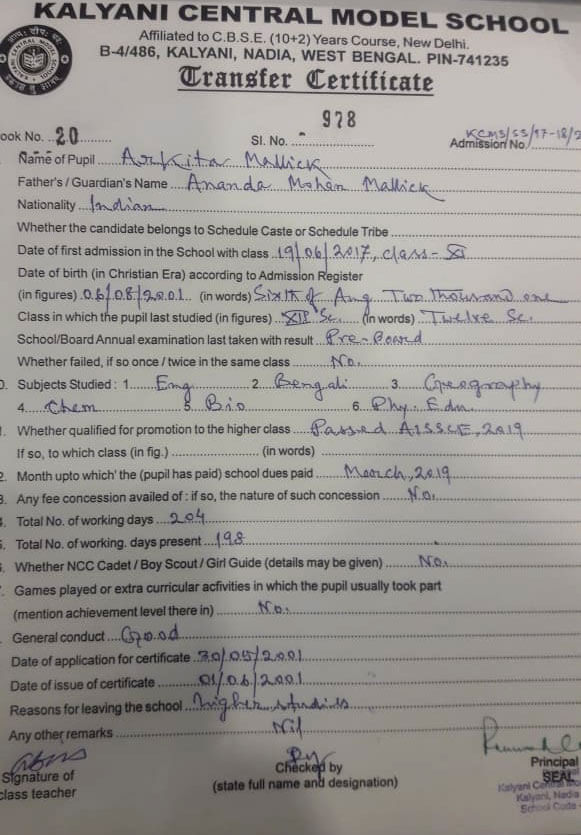 KALYANI CENTRAL MODEL SCHOOL
Affiliated to C.B.S.E. (10+2) Years Course, New Delhi.
B-4/486, KALYANI, NADIA, WEST BENGAL. PIN-741235
Transfer Certificate
978
ook No. 20 Sl. No. Admission No. KCMS/SS/17-18/2
Name of Pupil Arkita Mallick
Father's / Guardian's Name Ananda Mohan Mallick
Nationality Indian
Whether the candidate belongs to Schedule Caste or Schedule Tribe
Date of first admission in the School with class 19/06/2017, class-XI
Date of birth (in Christian Era) according to Admission Register
(in figures) 06/08/2001 (in words) Sixth of Aug Two thousand one
Class in which the pupil last studied (in figures) XII Sc. (in words) Twelve Sc.
School/Board Annual examination last taken with result Pre-Board
Whether failed, if so once / twice in the same class No.
0. Subjects Studied : 1. Eng 2. Bengali 3. Geography
4. Chem 5. Bio 6. Phy. Edn.
1. Whether qualified for promotion to the higher class Passed AISSCE, 2019
If so, to which class (in fig.) (in words)
2. Month upto which' the (pupil has paid) school dues paid March, 2019
3. Any fee concession availed of : if so, the nature of such concession No.
4. Total No. of working days 204
5. Total No. of working. days present 198
Whether NCC Cadet / Boy Scout / Girl Guide (details may be given) No.
Games played or extra curricular acfivities in which the pupil usually took part
(mention achievement level there in) No.
General conduct Good
Date of application for certificate 30/05/2001
Date of issue of certificate 01/06/2001
Reasons for leaving the school Higher studies
Any other remarks Nil
Signature of Checked by Principal
class teacher (state full name and designation) SEAL
Kalyani Central Mo
Kalyani, Nadia
School Code